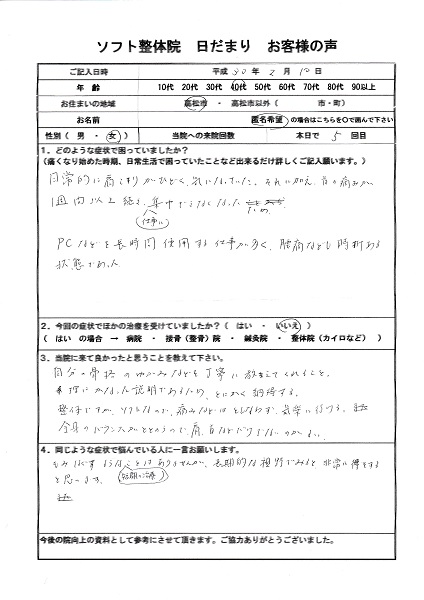 ソフト整体院　日だまり　お客様の声
ご記入日時　平成 30 年 2 月 10 日
年 齢　10代 20代 30代 40代 50代 60代 70代 80代 90以上
お住まいの地域　高松市 ・ 高松市以外（　　　市・町）
お名前　匿名希望 の場合はこちらを〇で囲んで下さい
性別（ 男 ・ 女 ）　当院への来院回数　本日で 5 回目
1．どのような症状で困っていましたか?
（痛くなり始めた時期、日常生活で困っていたことなど出来るだけ詳しくご記入願います。）
日常的に肩こりがひどく、気になっていた。それに加え、首の痛みが
1週間以上続き、集中できなくなった ため
仕事に
PCなどを長時間使用する仕事が多く、腰痛なども時折ある
状態であった
2．今回の症状でほかの治療を受けていましたか？（　はい　・　いいえ　）
（ はい　の場合 → 病院　・　接骨（整骨）院　・　鍼灸院　・　整体院（カイロなど）　）
3．当院に来て良かったと思うことを教えて下さい。
自分の骨格のゆがみなどを丁寧に教えてくれること。
理にかなった説明であるため、とにかく納得する。
整体ですが、ソフトなので、痛みなどは
全身のバランスがととのうので、肩、首など
4．同じような症状で悩んでいる人に一言お願いします。
もみほぐすようなことはありませんが、長期的な視野でみると非常に得をする
と思います。
今後の院向上の資料として参考にさせて頂きます。ご協力ありがとうございました。